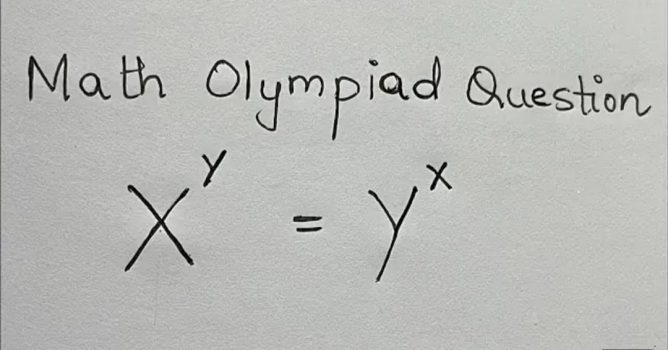 Math Olympiad Question
X^y = y^x